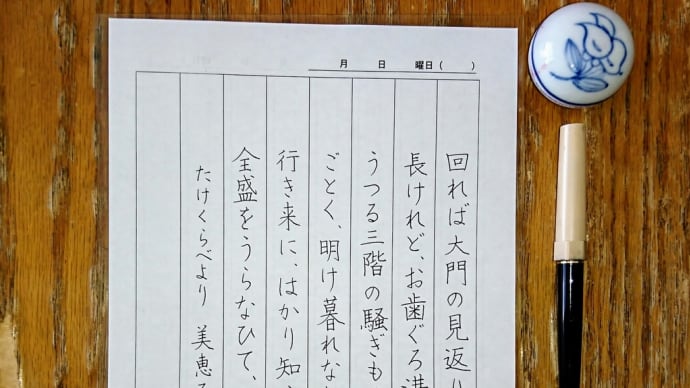 月　日　曜日（　）
回れば大門の見返り
長けれど、お歯ぐろ
うつる三階の騒ぎも
ごとく、明け暮れな
行き来に、はかり知
全盛をうらなひて、
たけくらべより 美恵